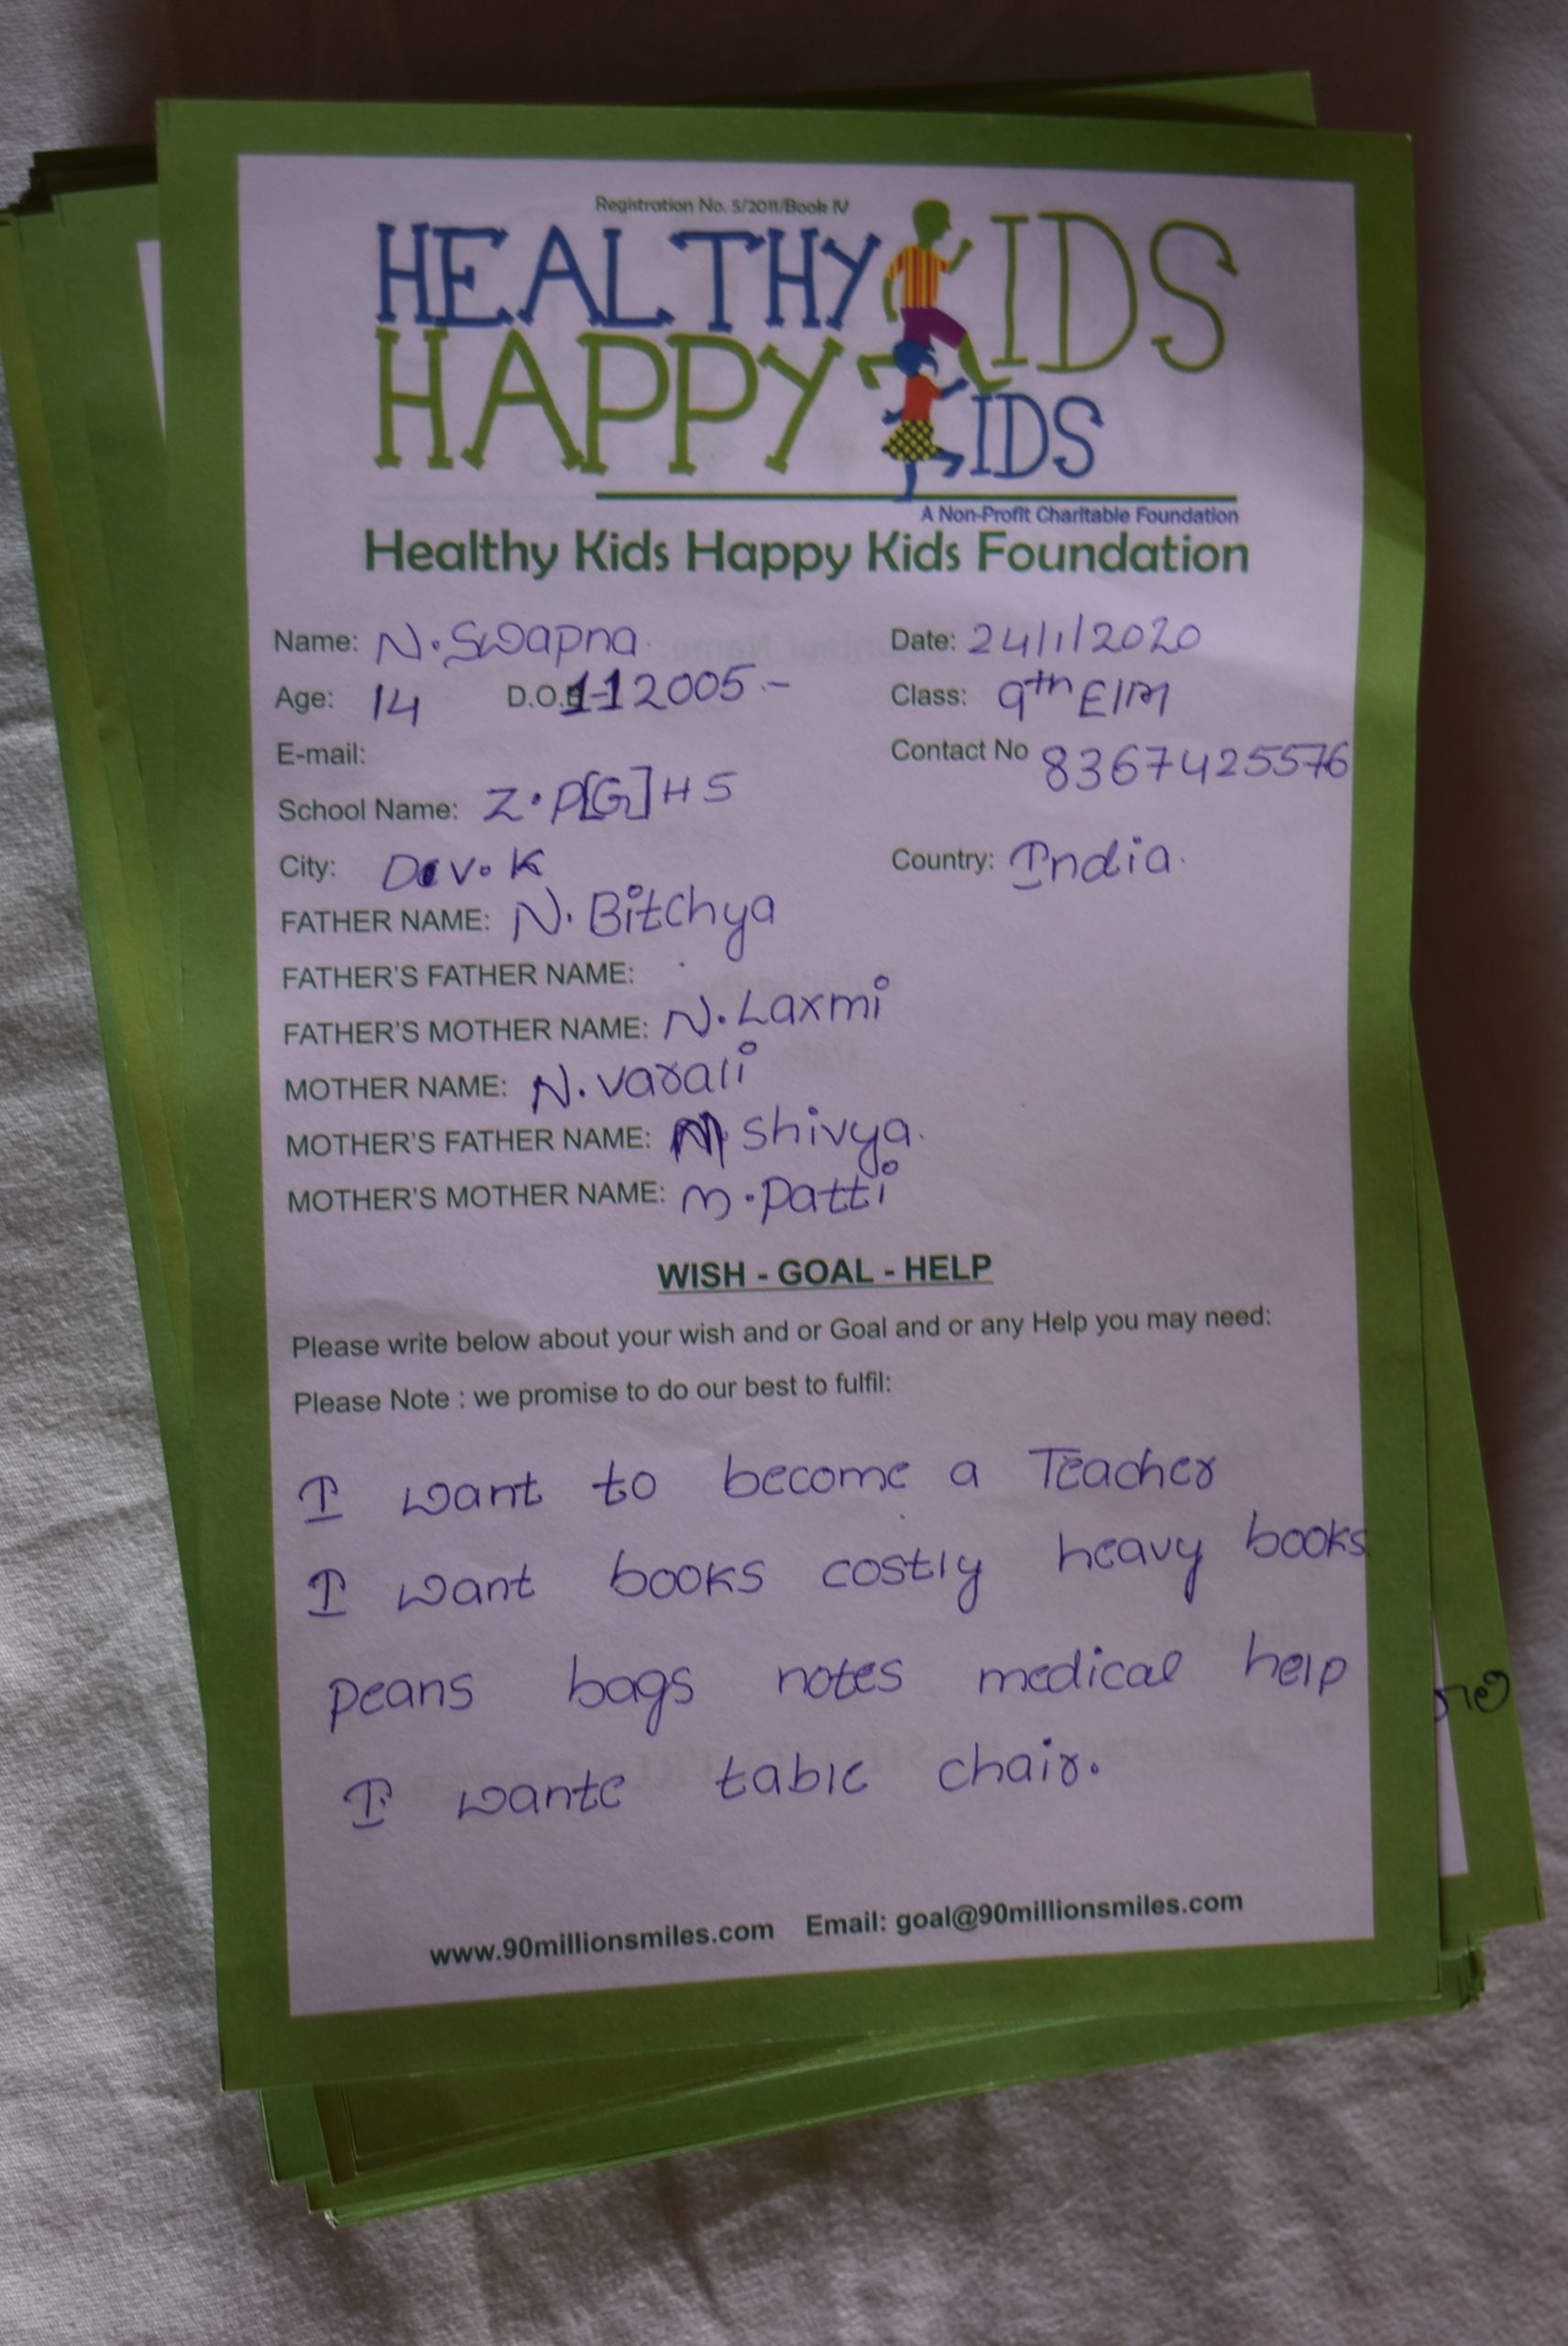 Registration No. 5/2011/Book IV
HEALTHY KIDS
HAPPY KIDS
A Non-Profit Charitable Foundation
Healthy Kids Happy Kids Foundation
Name: N. Swapna. Date: 24/1/2020
Age: 14 D.O.B 1-1 2005 - Class: 9th E/M
E-mail: Contact No 8367425576
School Name: Z.P[G]HS
City: Dev.K Country: India.
FATHER NAME: N. Bitchya
FATHER'S FATHER NAME:
FATHER'S MOTHER NAME: N. Laxmi
MOTHER NAME: N. varali
MOTHER'S FATHER NAME: M shivya.
MOTHER'S MOTHER NAME: m. patti
WISH - GOAL - HELP
Please write below about your wish and or Goal and or any Help you may need:
Please Note : we promise to do our best to fulfil:
I want to become a Teacher
I want books costly heavy books
peans bags notes medical help
I wante table chair.
www.90millionsmiles.com Email: goal@90millionsmiles.com